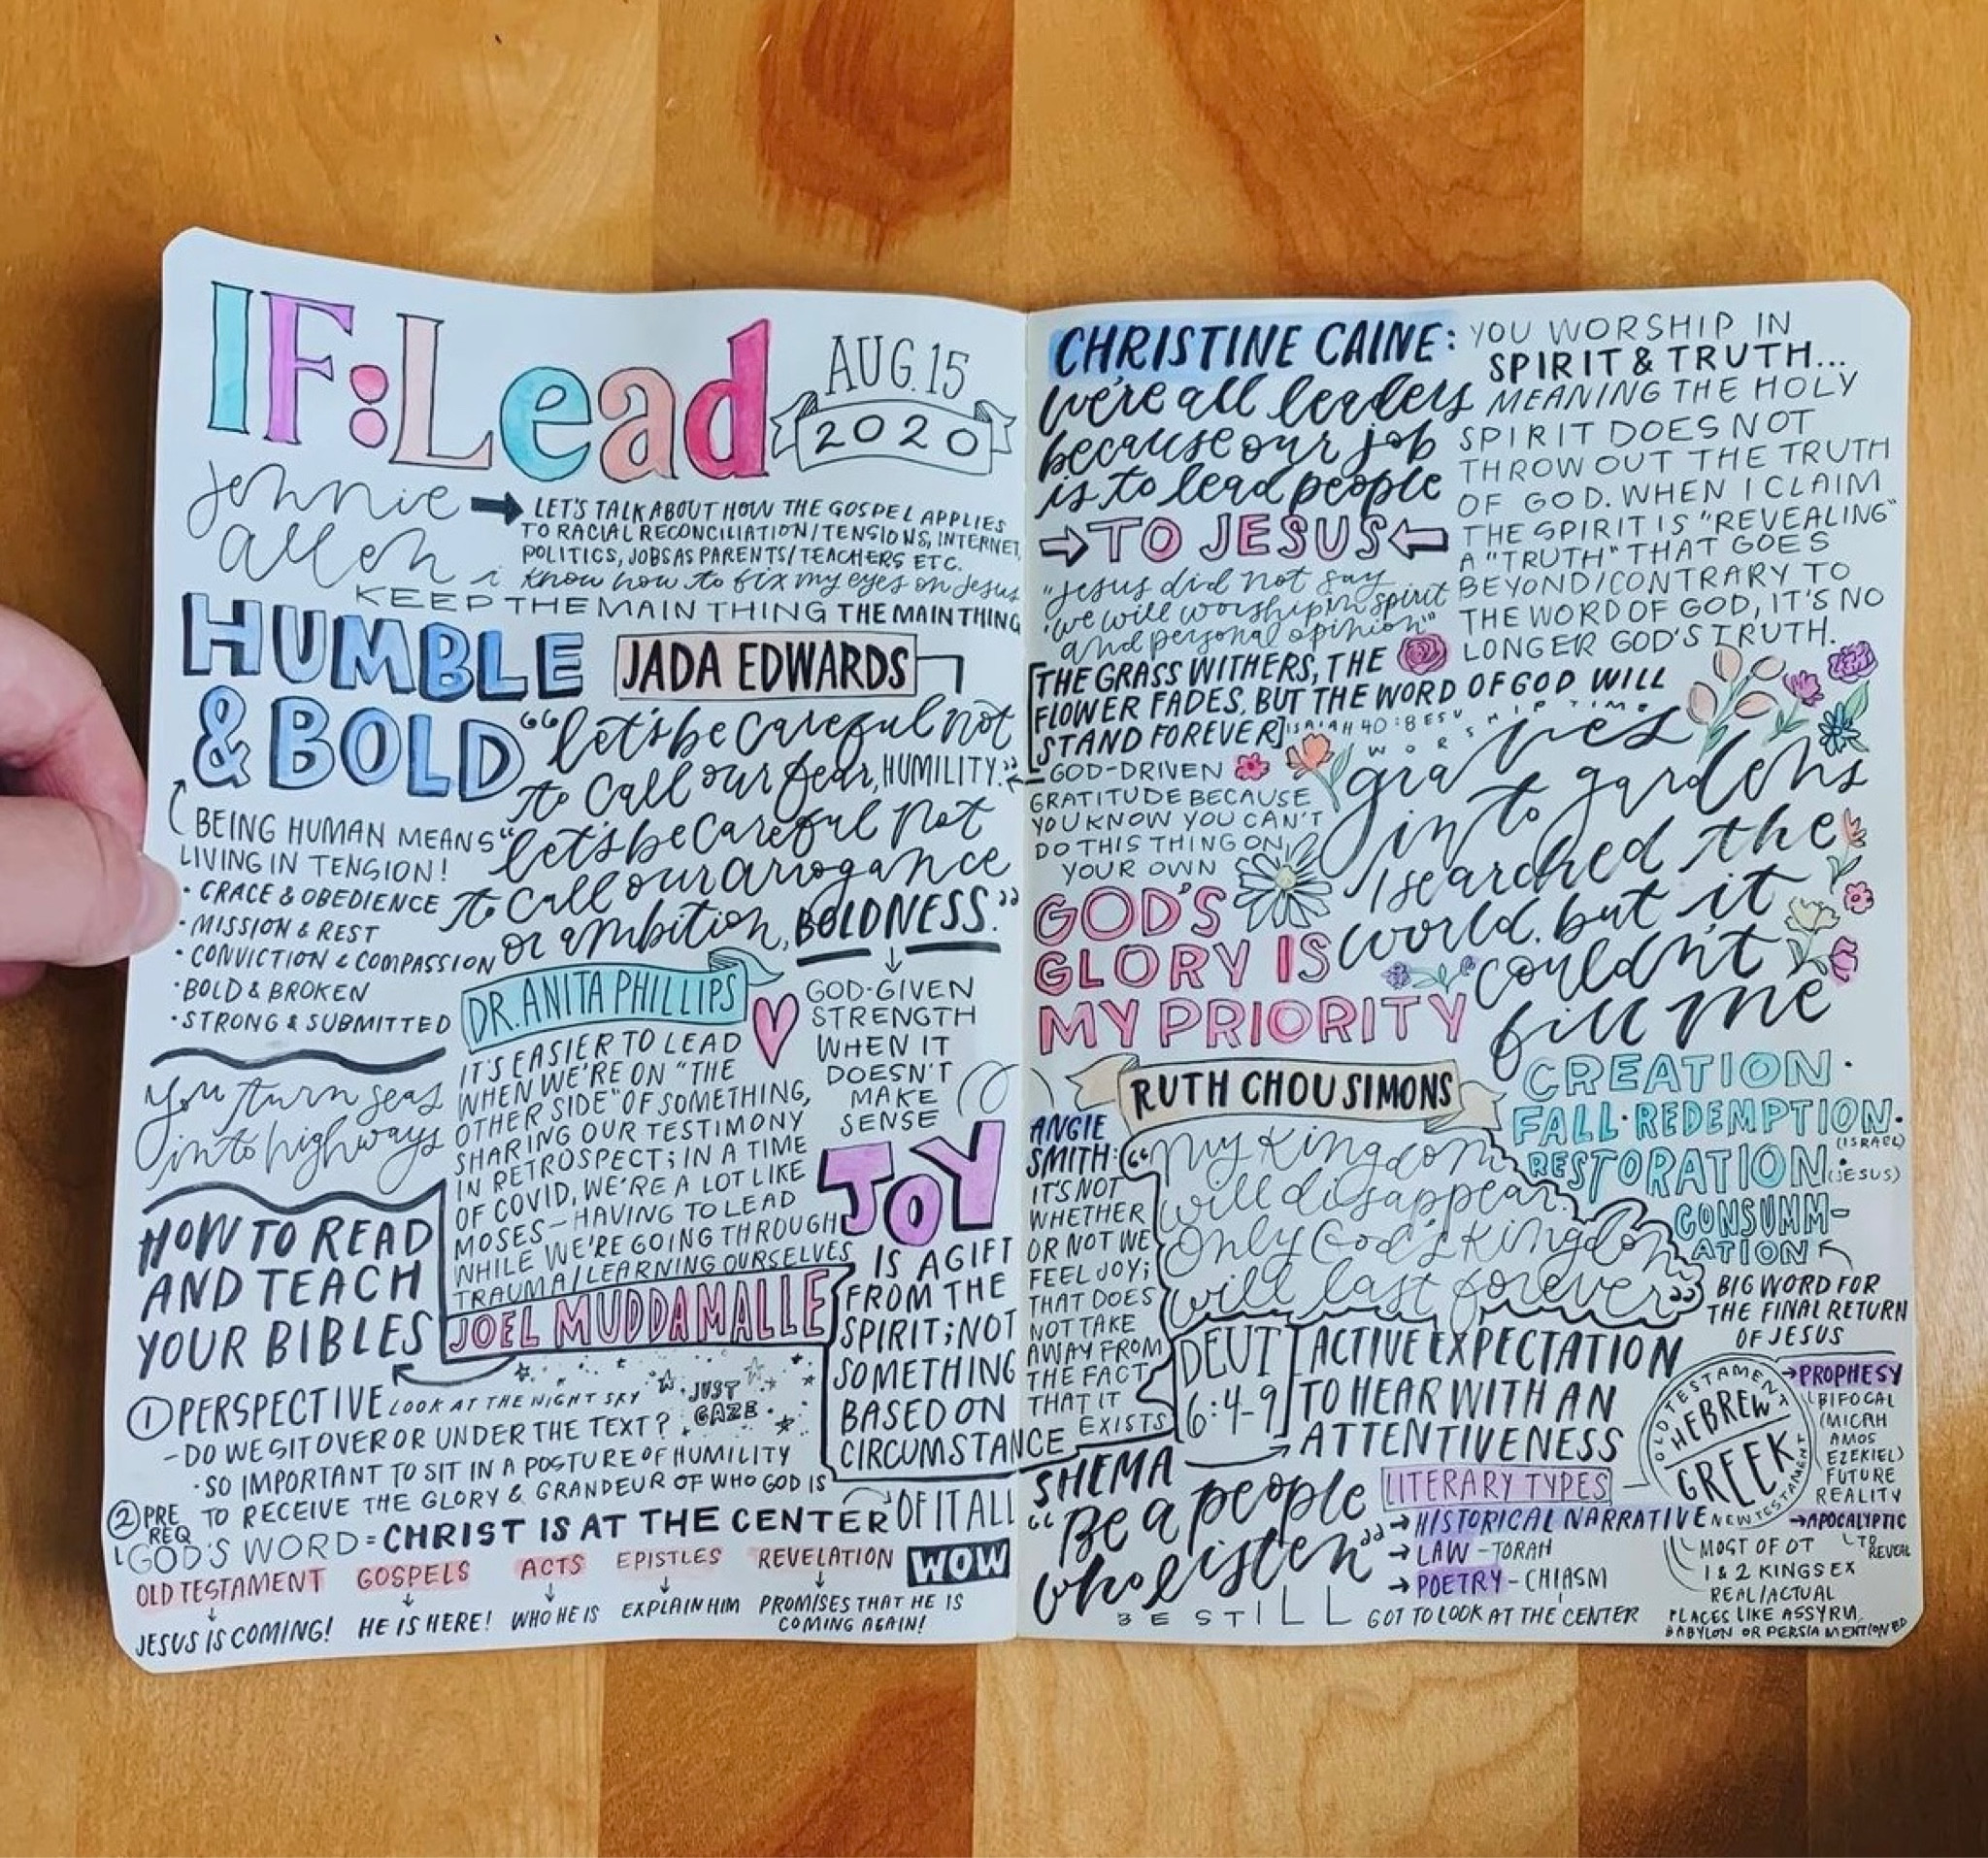 IF:Lead
AUG. 15
2020
jennie
allen
LET'S TALK ABOUT HOW THE GOSPEL APPLIES
TO RACIAL RECONCILIATION/TENSIONS, INTERNET,
POLITICS, JOBS AS PARENTS/TEACHERS ETC.
i know how to fix my eyes on Jesus
KEEP THE MAIN THING THE MAIN THING
HUMBLE
& BOLD
JADA EDWARDS
"let's be careful not
to call our fear, HUMILITY."
"let's be careful not
to call our arrogance
or ambition, BOLDNESS."
BEING HUMAN MEANS
LIVING IN TENSION!
• GRACE & OBEDIENCE
• MISSION & REST
• CONVICTION & COMPASSION
• BOLD & BROKEN
• STRONG & SUBMITTED
GOD-GIVEN
STRENGTH
WHEN IT
DOESN'T
MAKE
SENSE
You turn seas
into highways
DR. ANITA PHILLIPS
IT'S EASIER TO LEAD
WHEN WE'RE ON "THE
OTHER SIDE" OF SOMETHING,
SHARING OUR TESTIMONY
IN RETROSPECT; IN A TIME
OF COVID, WE'RE A LOT LIKE
MOSES - HAVING TO LEAD
WHILE WE'RE GOING THROUGH
TRAUMA/LEARNING OURSELVES
JOY
IS A GIFT
FROM THE
SPIRIT; NOT
SOMETHING
BASED ON
CIRCUMSTANCE
HOW TO READ
AND TEACH
YOUR BIBLES
JOEL MUDDAMALLE
① PERSPECTIVE LOOK AT THE NIGHT SKY
JUST
GAZE
- DO WE SIT OVER OR UNDER THE TEXT?
• SO IMPORTANT TO SIT IN A POSTURE OF HUMILITY
TO RECEIVE THE GLORY & GRANDEUR OF WHO GOD IS
② PRE
REQ
GOD'S WORD = CHRIST IS AT THE CENTER OF IT ALL
WOW
OLD TESTAMENT GOSPELS ACTS EPISTLES REVELATION
JESUS IS COMING! HE IS HERE! WHO HE IS EXPLAIN HIM PROMISES THAT HE IS
COMING AGAIN!
CHRISTINE CAINE:
we're all leaders
because our job
is to lead people
→ TO JESUS ←
"Jesus did not say
'we will worship in spirit
and personal opinion'"
YOU WORSHIP IN
SPIRIT & TRUTH...
MEANING THE HOLY
SPIRIT DOES NOT
THROW OUT THE TRUTH
OF GOD. WHEN I CLAIM
THE SPIRIT IS "REVEALING"
A "TRUTH" THAT GOES
BEYOND/CONTRARY TO
THE WORD OF GOD, IT'S NO
LONGER GOD'S TRUTH.
[THE GRASS WITHERS, THE
FLOWER FADES, BUT THE WORD OF GOD WILL
STAND FOREVER] ISAIAH 40:8 ESV
WORSHIP TIME
GOD-DRIVEN
GRATITUDE BECAUSE
YOU KNOW YOU CAN'T
DO THIS THING ON
YOUR OWN
graves
into gardens
I searched the
world, but it
couldn't
fill me
GOD'S
GLORY IS
MY PRIORITY
RUTH CHOU SIMONS
"My kingdom
will disappear.
Only God's kingdom
will last forever"
CREATION •
FALL • REDEMPTION •
(ISRAEL)
RESTORATION • (JESUS)
CONSUMM-
ATION
BIG WORD FOR
THE FINAL RETURN
OF JESUS
ANGIE
SMITH:
IT'S NOT
WHETHER
OR NOT WE
FEEL JOY;
THAT DOES
NOT TAKE
AWAY FROM
THE FACT
THAT IT
EXISTS
DEUT
6:4-9
ACTIVE EXPECTATION
TO HEAR WITH AN
ATTENTIVENESS
SHEMA
"Be a people
who listen"
BE STILL
OLD TESTAMENT
HEBREW
GREEK
NEW TESTAMENT
LITERARY TYPES
→ HISTORICAL NARRATIVE
→ LAW - TORAH
→ POETRY - CHIASM
GOT TO LOOK AT THE CENTER
→ PROPHESY
BIFOCAL
(MICAH
AMOS
EZEKIEL)
FUTURE
REALITY
→ APOCALYPTIC
TO
REVEAL
MOST OF OT
1 & 2 KINGS EX
REAL/ACTUAL
PLACES LIKE ASSYRIA,
BABYLON OR PERSIA MENTIONED